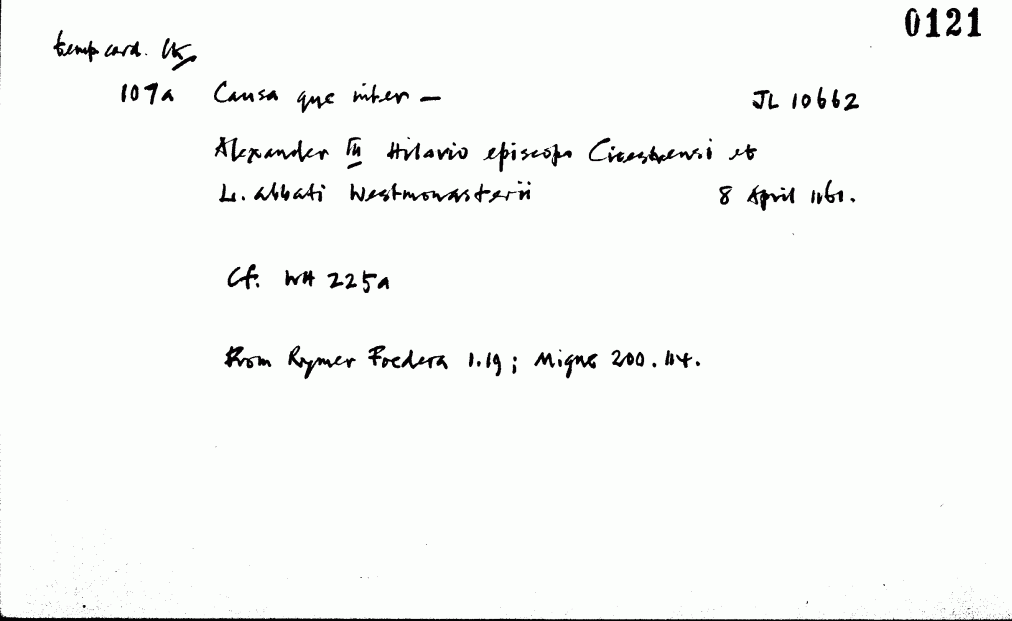 0121
temp card.
107a Causa que inter — JL 10662
Alexander III Hilario episcopo Cicestrensi et
L. abbati Westmonasterii 8 April 1161.
Cf. WH 225a
From Rymer Foedera 1.19; Migne 200.114.